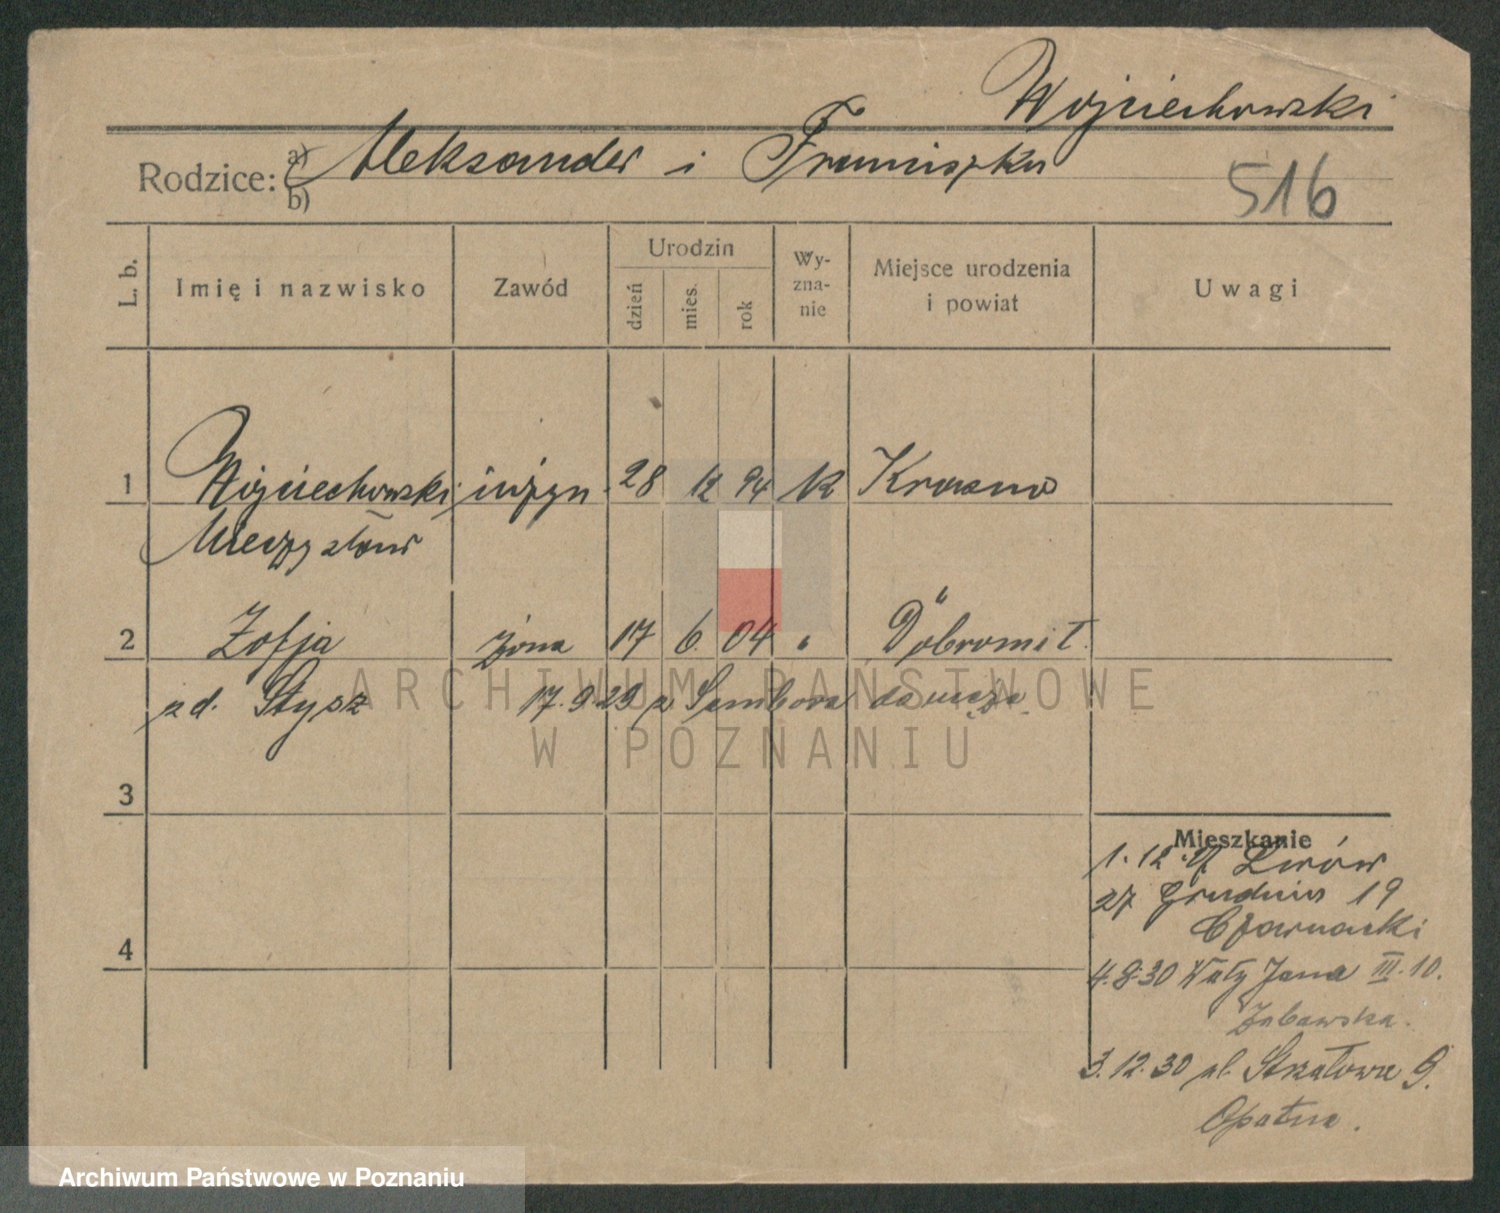 Wojciechowski
Rodzice: a) Aleksander i Franciszka
b)
516
L. b.
Imię i nazwisko
Zawód
Urodzin
dzień
mies.
rok
Wy-
zna-
nie
Miejsce urodzenia
i powiat
Uwagi
1 Wojciechowski inżyn. 28 12 94 rk Krosno
Mieczysław
2 Zofja żona 17 6. 04 " Dobromil
zd. Stysz 17.9.29 z Sambora do męża
3
Mieszkanie
1.12. Lwów
27 Grudnia 19
Czarnecki
4
4.8.30 Wały Jana III. 10.
Żabawska.
3.12.30 ul. Strzałowa 9.
Opatna.
ARCHIWUM PAŃSTWOWE
W POZNANIU
Archiwum Państwowe w Poznaniu